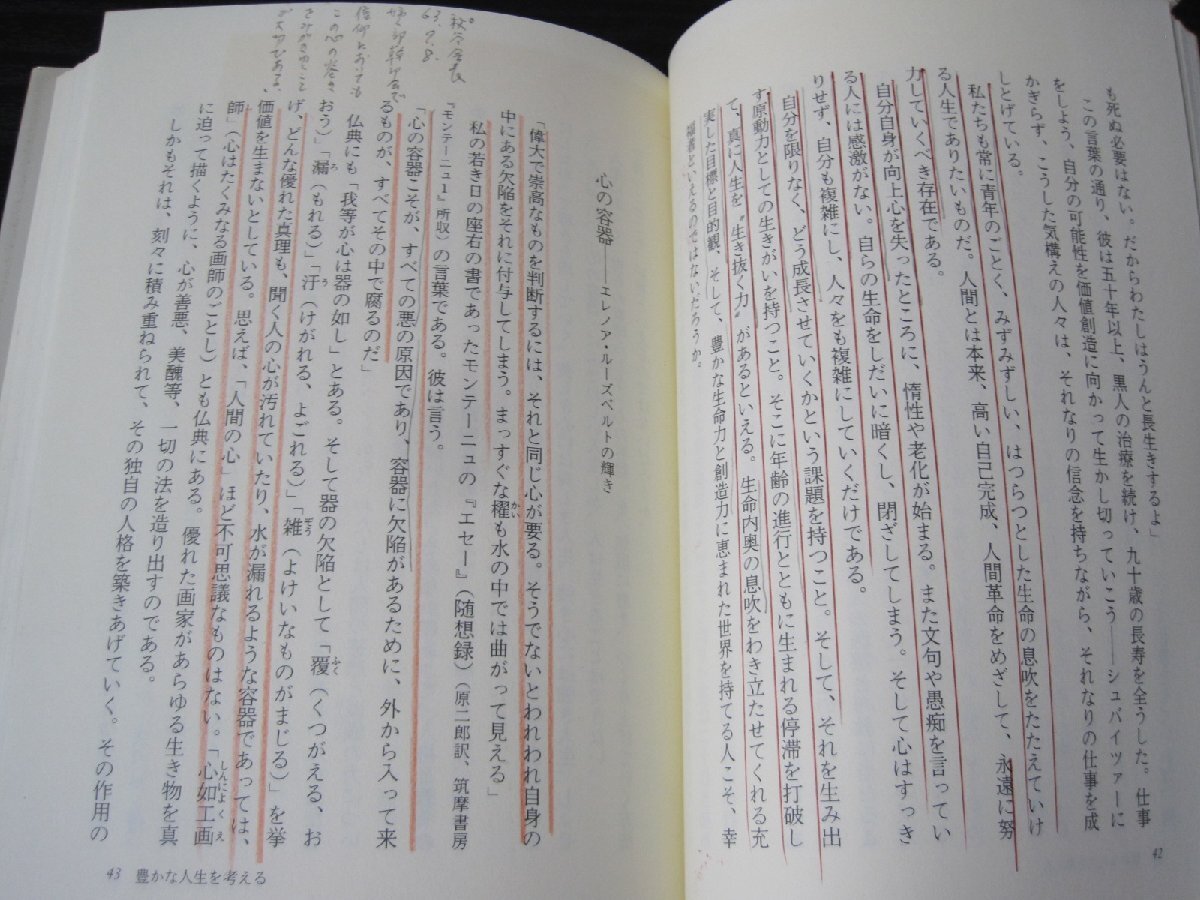 も死ぬ必要はない。だからわたしはうんと長生きするよ」
この言葉の通り、彼は五十年以上、黒人の治療を続け、九十歳の長寿を全うした。仕事
をしよう、自分の可能性を価値創造に向かって生かし切っていこう――シュバイツァーに
かぎらず、こうした気構えの人々は、それなりの信念を持ちながら、それなりの仕事を成
しとげている。
私たちも常に青年のごとく、みずみずしい、はつらつとした生命の息吹をたたえていけ
る人生でありたいものだ。人間とは本来、高い自己完成、人間革命をめざして、永遠に努
力していくべき存在である。
自分自身が向上心を失ったところに、惰性や老化が始まる。また文句や愚痴を言ってい
る人には感激がない。自らの生命をしだいに暗くし、閉ざしてしまう。そして心はすっき
りせず、自分も複雑にし、人々をも複雑にしていくだけである。
自分を限りなく、どう成長させていくかという課題を持つこと。そして、それを生み出
す原動力としての生きがいを持つこと。そこに年齢の進行とともに生まれる停滞を打破し
て、真に人生を〝生き抜く力〟があるといえる。生命内奥の息吹をわき立たせてくれる充
実した目標と目的観、そして、豊かな生命力と創造力に恵まれた世界を持てる人こそ、幸
福者といえるのではないだろうか。
42
心の容器――エレノア・ルーズベルトの輝き
「偉大で崇高なものを判断するには、それと同じ心が要る。そうでないとわれわれ自身の
中にある欠陥をそれに付与してしまう。まっすぐな櫂も水の中では曲がって見える」
私の若き日の座右の書であったモンテーニュの『エセー』(随想録)(原二郎訳、筑摩書房
『モンテーニュⅠ』所収)の言葉である。彼は言う。
「心の容器こそが、すべての悪の原因であり、容器に欠陥があるために、外から入って来
るものが、すべてその中で腐るのだ」
仏典にも「我等が心は器の如し」とある。そして器の欠陥として「覆(くつがえる、お
おう)」「漏(もれる)」「汙(けがれる、よごれる)」「雑(よけいなものがまじる)」を挙
げ、どんな優れた真理も、聞く人の心が汚れていたり、水が漏れるような容器であっては、
価値を生まないとしている。思えば、「人間の心」ほど不可思議なものはない。「心如工画
師」(心はたくみなる画師のごとし)とも仏典にある。優れた画家があらゆる生き物を真
に迫って描くように、心が善悪、美醜等、一切の法を造り出すのである。
しかもそれは、刻々に積み重ねられて、その独自の人格を築きあげていく。その作用の
43 豊かな人生を考える
63.9.8.